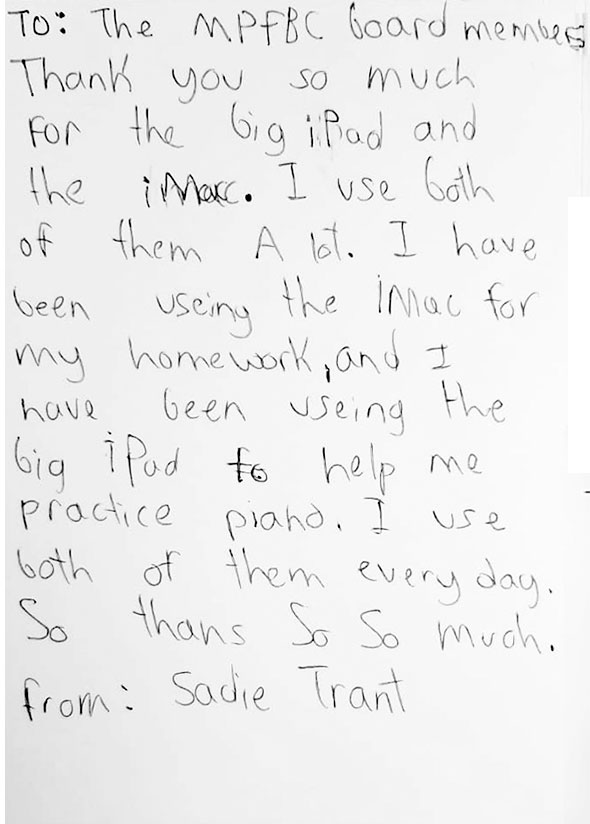 To: The MPFBC board members
Thank you so much
For the big iPad and
the iMac. I use both
of them A lot. I have
been useing the iMac for
my homework, and I
have been useing the
big iPad to help me
practice piano. I use
both of them every day.
So thans So So much.
from: Sadie Trant